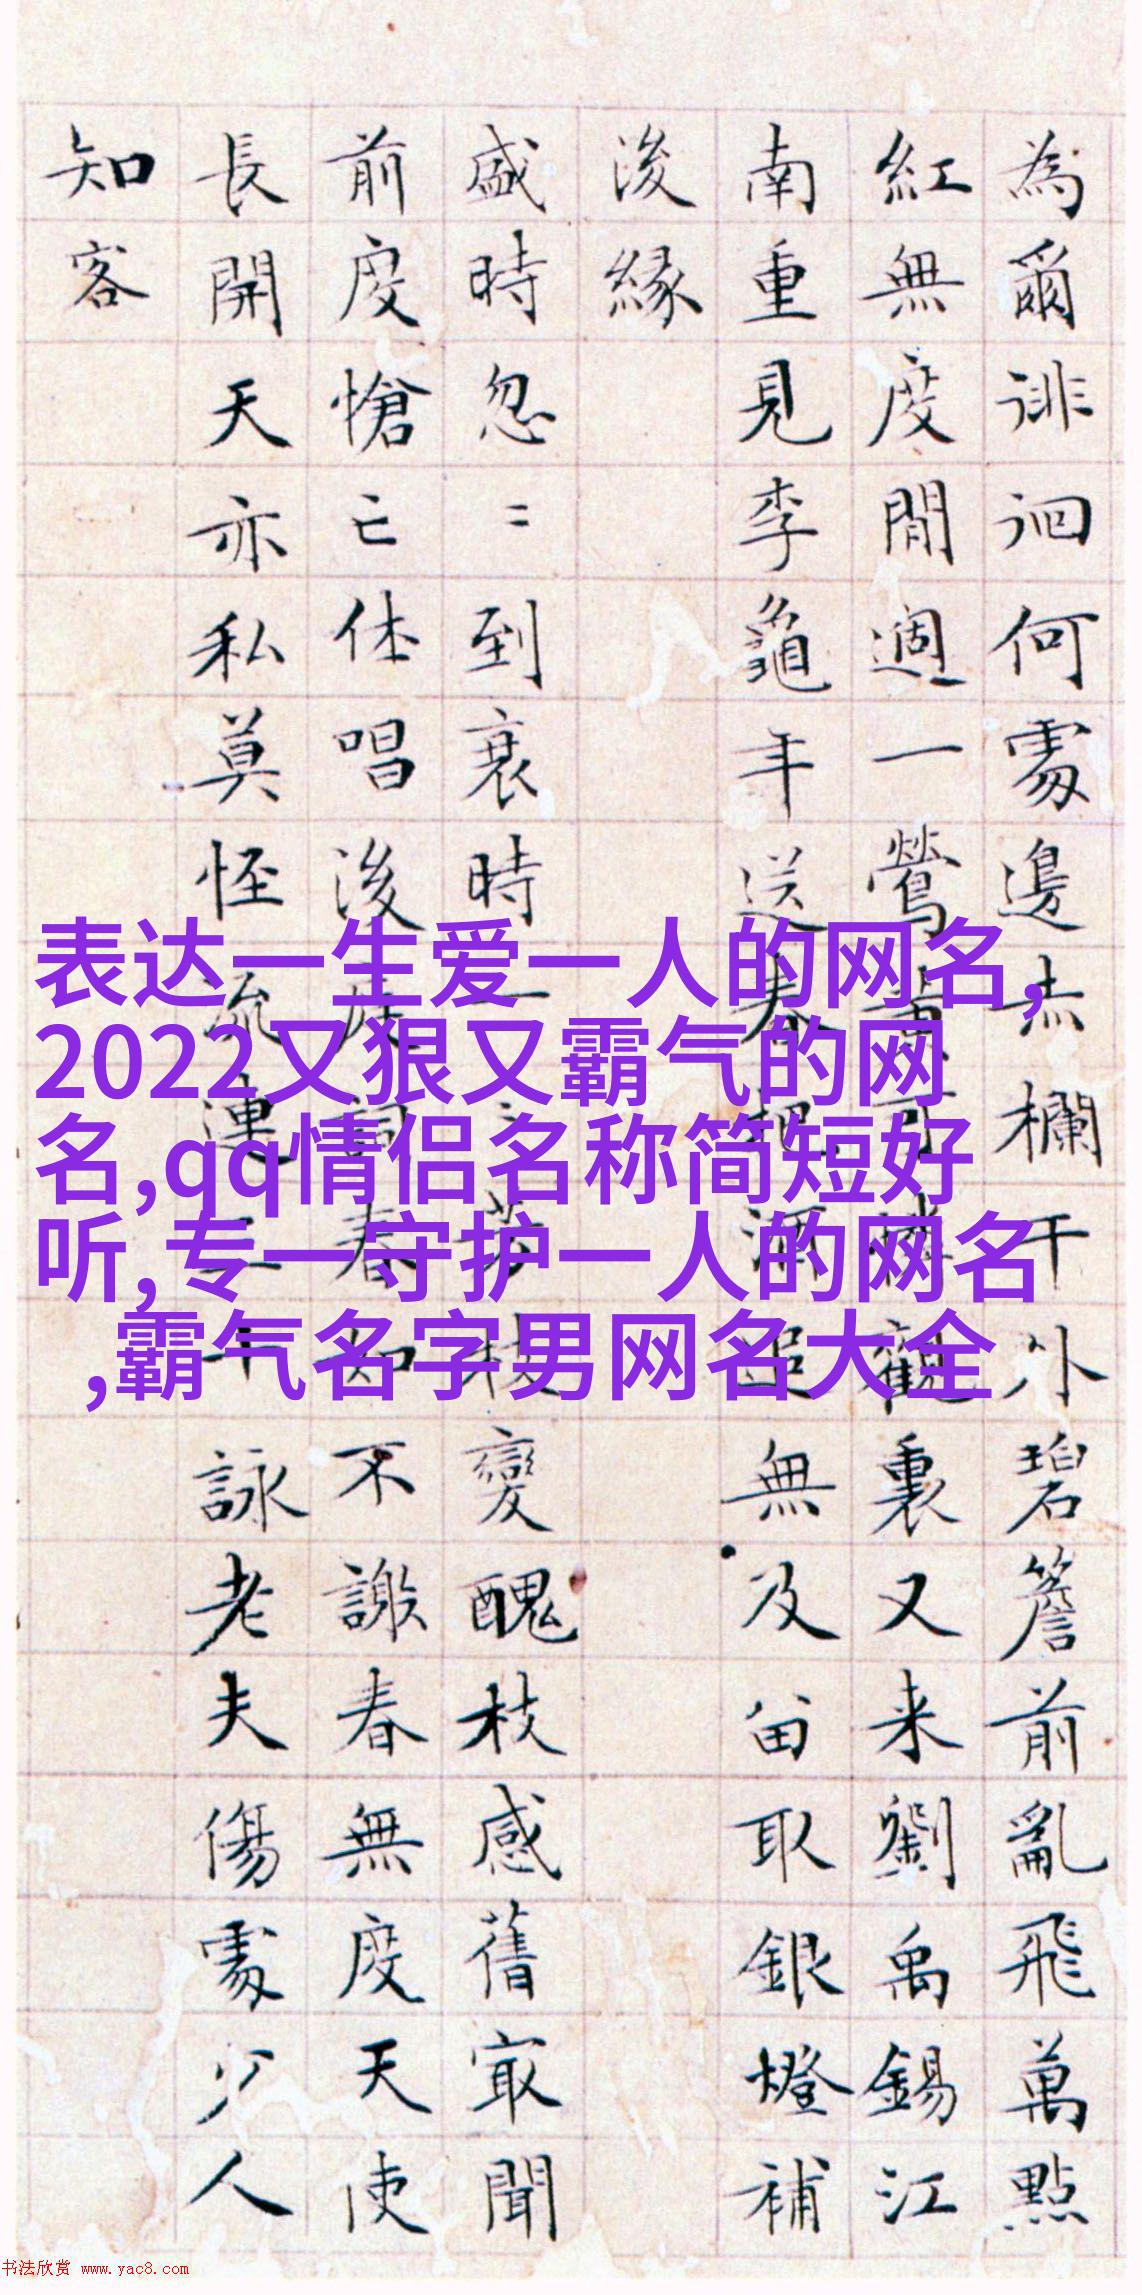 為爾徘徊何處邊赤欄干外碧簷前亂飛萬點
紅無度閒週一鶯可憐觀裏又来劉禹錫江
南重見李龜年送春把酒追無及留取銀燈補
後緣
盛時忽〻到衰時一〻芳枝變醜枝感舊最聞
前度愴亡休唱後庭詞春如不謝春無度天使
長開天亦私莫怪流連三十詠老夫傷處少人
知客
表达一生爱一人的网名,
2022又狠又霸气的网
名,qq情侣名称简短好
听,专一守护一人的网名
,霸气名字男网名大全
书法欣赏 www.yac8.com